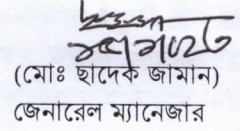 (মোঃ ছাদেক জামান)
জেনারেল ম্যানেজার